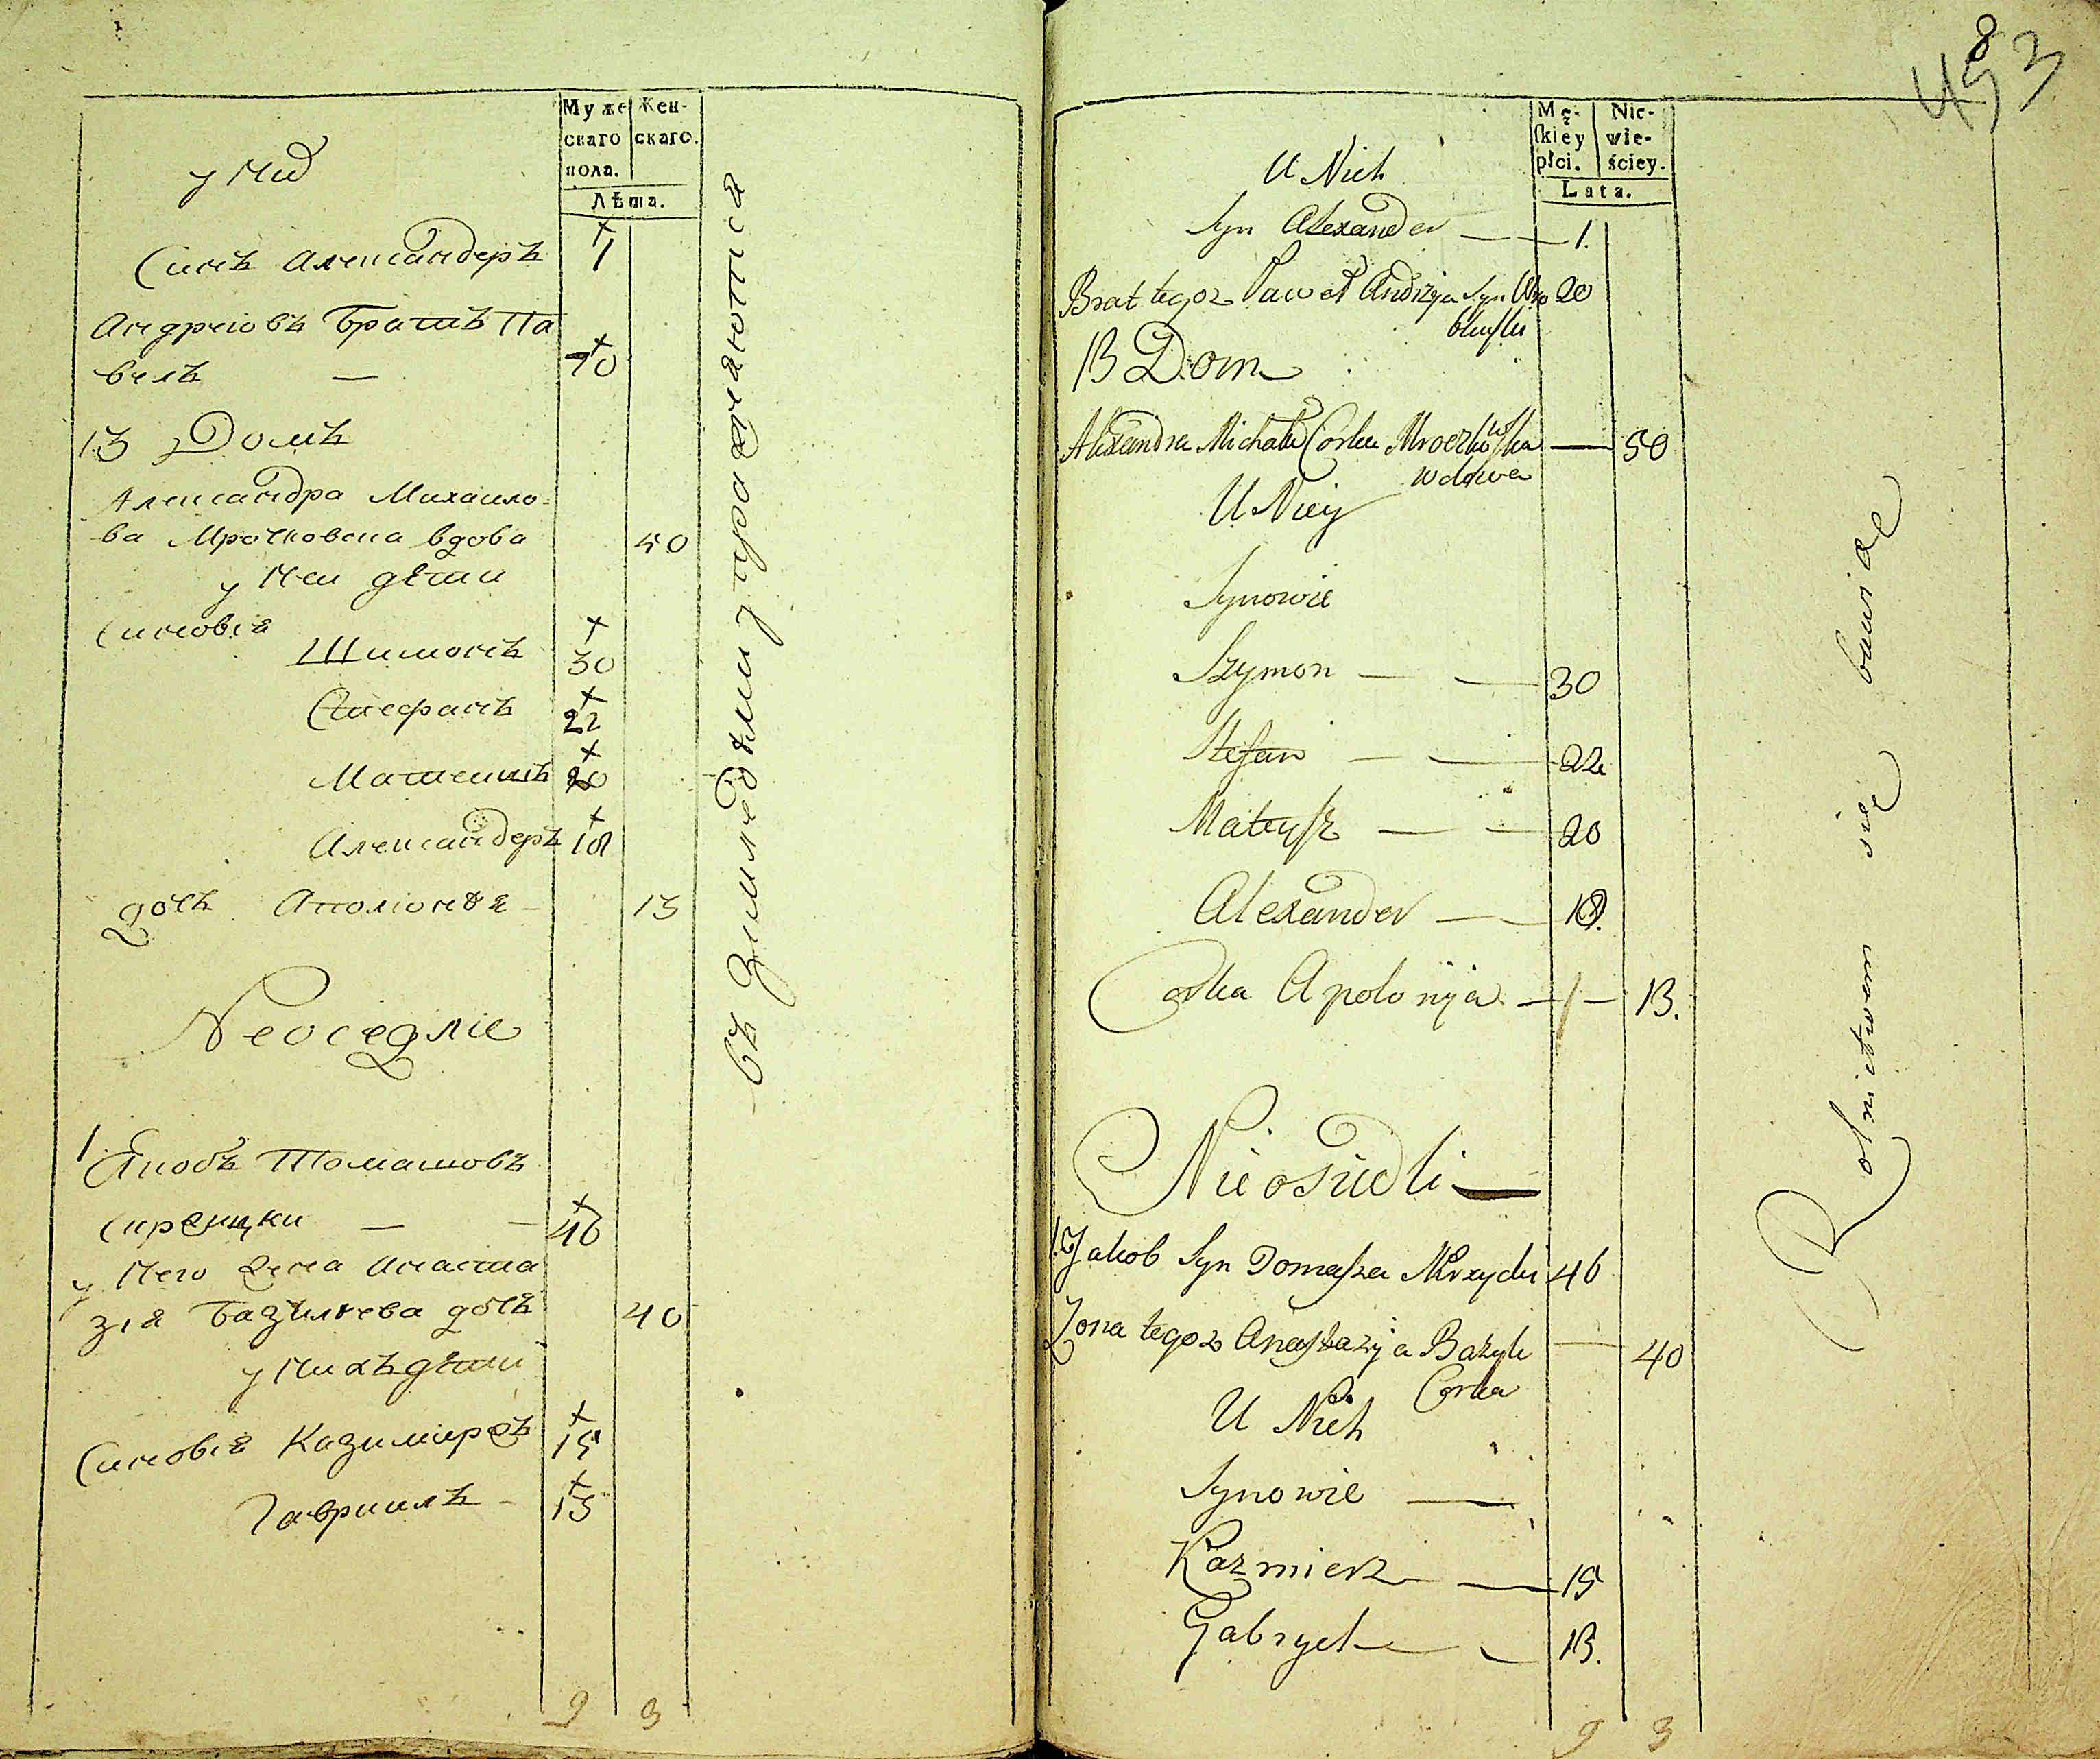 Муже Жен-
скаго скаго.
пола.
Лѣта.
у них
Синъ Александеръ 1
Андреiовъ Братъ Па
велъ — 20
13 Домъ
Александра Михаило-
ва Мрочковска вдова 50
у Неи дѣти
Синовiя
Шимонъ 30
Стефанъ 22
Матеушъ 20
Александеръ 18
дочь Аполiонiя — 13
Неоседлiе
1 Якобъ Томашовъ
— — 46
у Него жена Анаста
зiя Базилева дочъ 40
у Них дѣти
Синовiя Казимiеръ 15
Гаврiилъ — 13
9 3
въ Земледѣлiи упражняются
8
493
Mę- Nie-
ſkiey wie-
płci. ściey.
Lata.
U Nich
Syn Alexander — 1.
Brat tegoż Paweł Andrzeja Syn 20
13 Dom
Alexandra Michała Corka Mroczkowſka — 50
wdowa
U Niey
Synowie
Szymon — — 30
Stefan — — 22
Mateuſz — — 20
Alexander — — 18.
Corka Apolonija — 13.
Nieosiedli —
1. Jakob Syn Tomaſza 46
Zona tegoż Anaſtazyja Bazyli — 40
Corka
U Nich
Synowie —
Kazmierz — 15
Gabryel — 13.
9 3
Rolnictwem się bawią